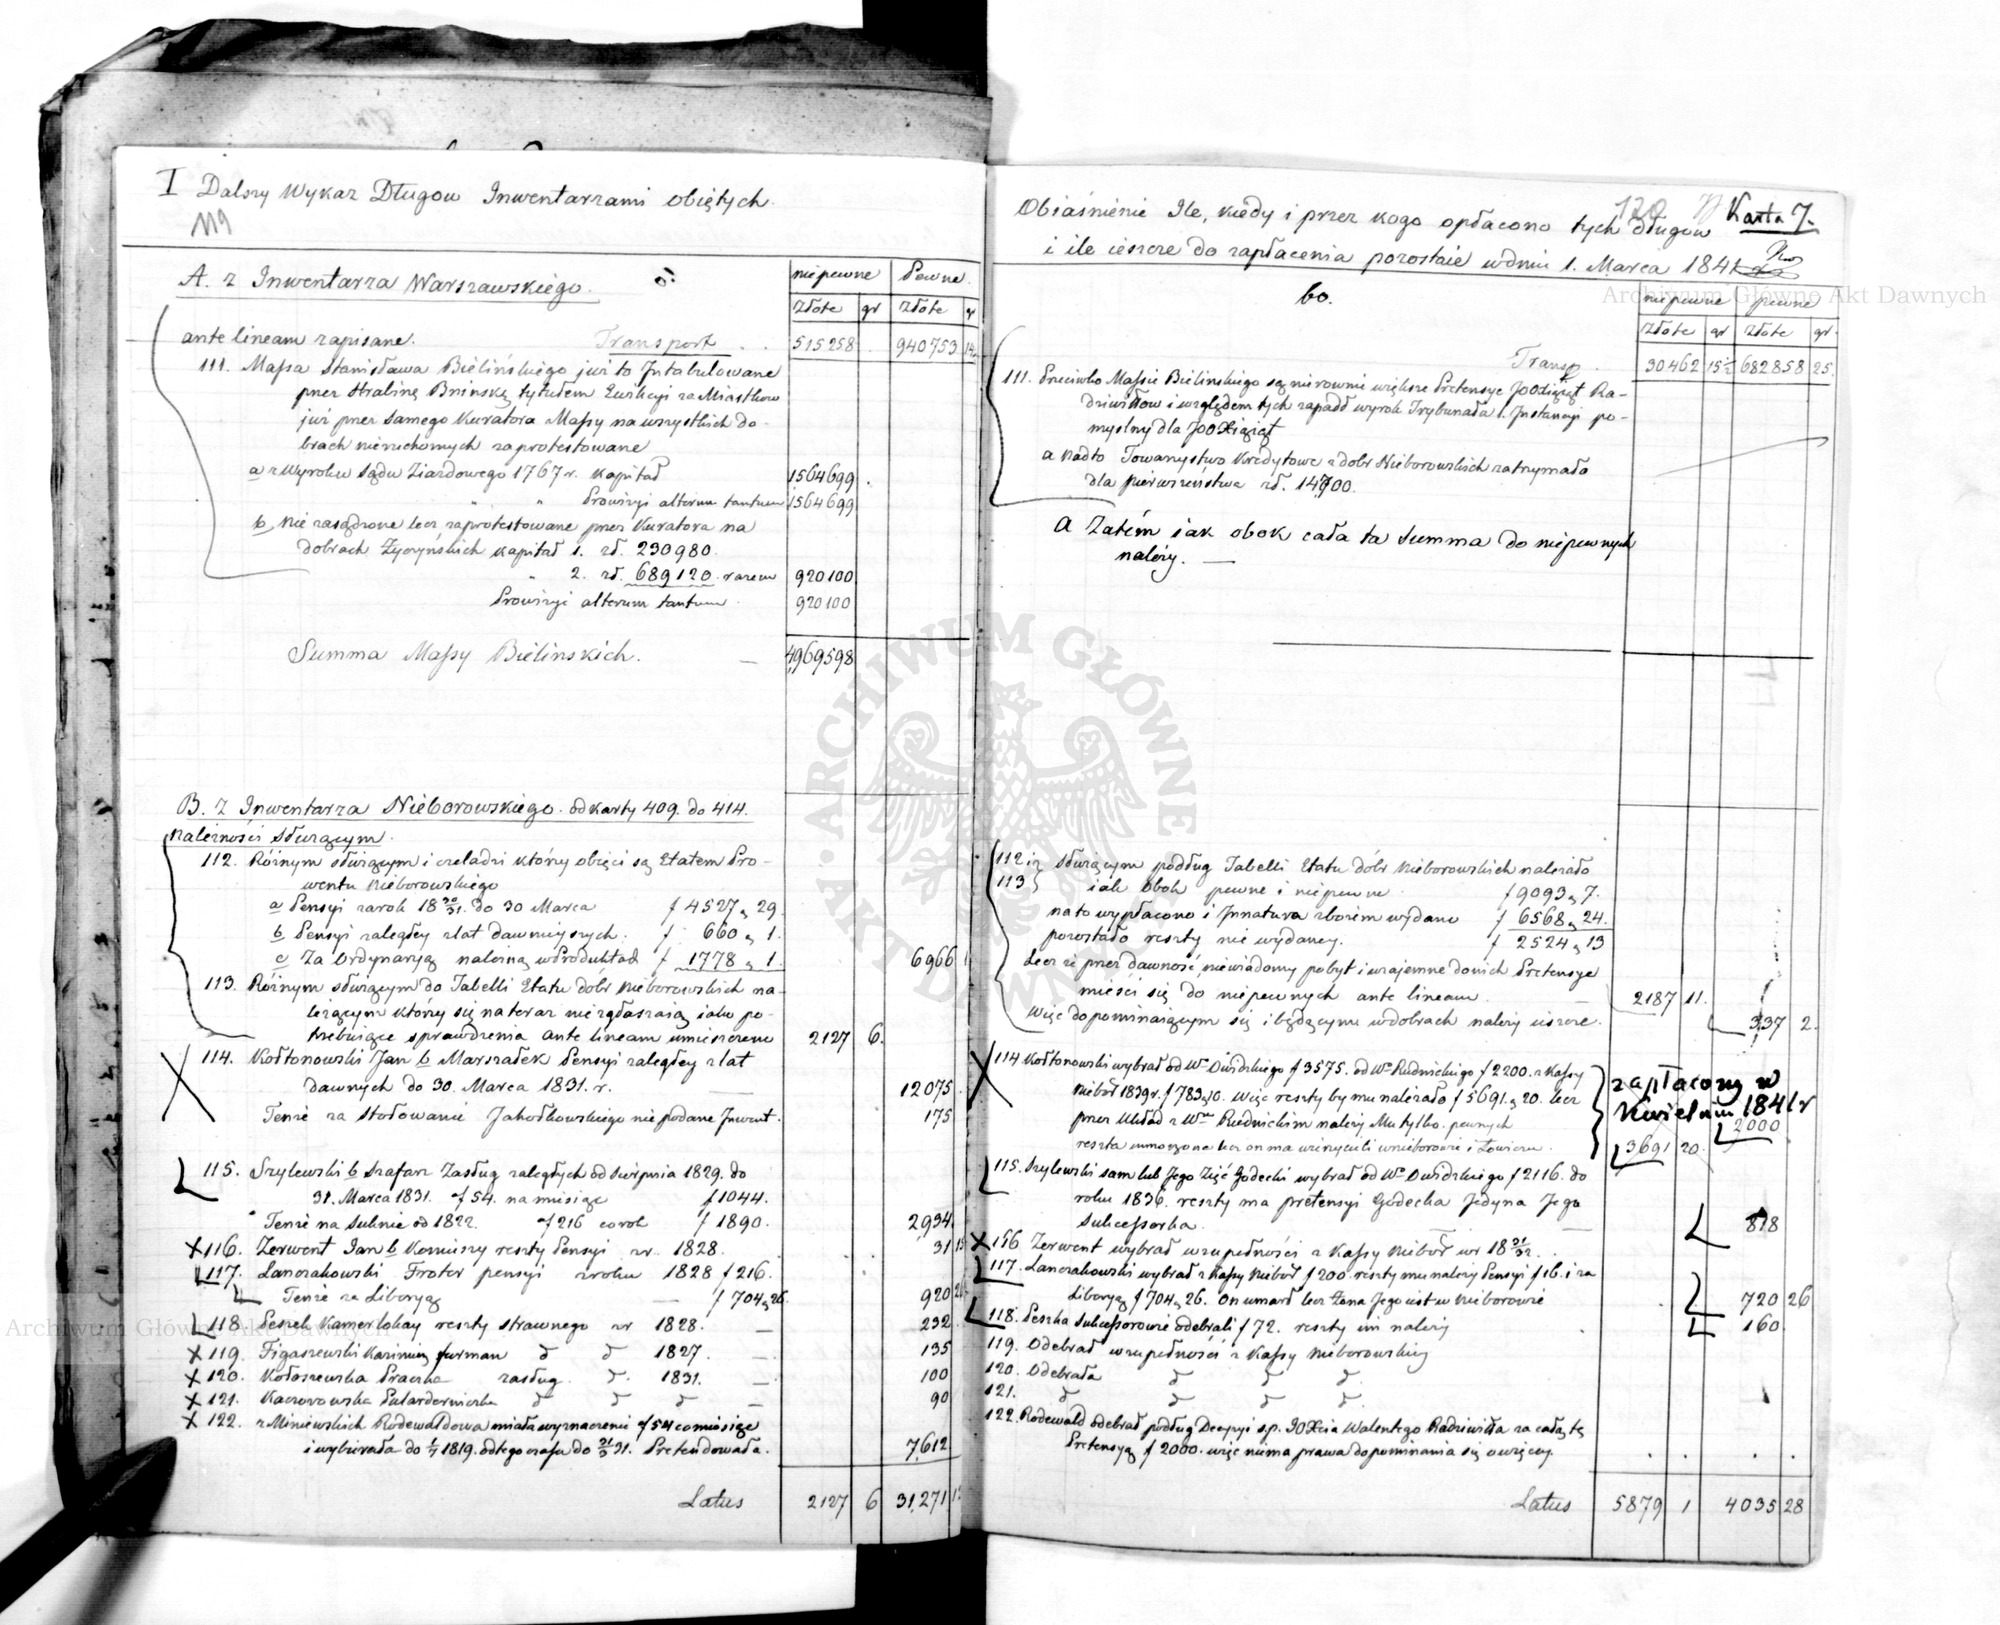 I Dalszy Wykaz Długow Inwentarzami obiętych.
119
A. z Inwentarza Warszawskiego.
niepewne Pewne.
Złote gr Złote gr
ante lineam zapisane. Transport . . 515258 . 940753 14
111. Massa Stanisława Bielińskiego już to Intabulowane
przez Hrabinę Bnińską tytułem Ewikcyi za Miastkow
już przez samego Kuratora Massy na wszystkich do-
brach nieruchomych zaprotestowane
a z Wyroku Sądu Ziazdowego 1767 r. Kapitał 1564699 .
" " Prowizyi alterum tantum 1564699
b, nie zasądzone lecz zaprotestowane przez Kuratora na
dobrach Zyczyńskich kapitał 1. zł. 230980.
" 2. zł. 689120. razem 920100
Prowizyi alterum tantum. 920100
Summa Massy Bielinskich. — 4,969598
B. z Inwentarza Nieborowskiego. od karty 409. do 414.
należności służącym.
112. Róźnym służącym i czeladzi którzy obięci są Etatem Pro-
wentu Nieborowskiego
a Pensyi za rok 18 30/31. do 30 Marca f 4527 „ 29.
b Pensyi zaległey z lat dawnieyszych. f 660 „ 1.
c Za Ordynaryą należną w Produktach f 1778 „ 1. 6966 1
113. Róźnym służącym do Tabelli Etatu dóbr Nieborowskich na-
leżącym którzy się na teraz nie zgłaszaią iako po-
trzebuiące sprawdzenia ante lineam umieszczone 2127 6.
114. Kołtonowski Jan b Marszałek Pensyi zaległey z lat
dawnych do 30. Marca 1831. r. — 12075.
Tenże za stołowanie Jakołkowskiego nie podane Inwent. 175
115. Szylewski b Szafarz Zasług zaległych od Sierpnia 1829. do
31. Marca 1831. f 54. na miesiąc f 1044.
Tenże na suknie od 1822. f 216 co rok f 1890. 2,934.
116. Zerwent Jan b Koniuszy reszty Pensyi zr. 1828. 31 15
117. Lanczakowski Froter pensyi z roku 1828 f 216.
Tenże za Liberyą — f 704 „ 26. 920 26
118. Peszel Kamerlokay reszty strawnego zr 1828. — 232
119. Figaszewski Kazimierz furman đ đ 1827. — 135
120. Kołoszewska Praczka zasług đ. 1831. — 100
121. Kaczorowska Pulardorniczka đ đ đ — 90
122. z Miniewskich Rodewaldowa miała wyznaczenie f 54 co miesiąc
i wybierała do 1/7 1819. od tego czasu do 31/3 31. Pretendowała. 7,612
Latus 2127 6 31,271
Obiaśnienie Ile, kiedy i przez kogo opłacono tych długow
120 Karta 7.
i ile ieszcze do zapłacenia pozostaie w dniu 1. Marca 1841
bo.
niepewne pewne
Złote gr Złote gr.
Transp. 30462 15½ 682858 25.
111. Przeciwko Massie Bielinskiego są nierownie większe Pretensye JOO Xiążąt Ra-
dziwiłłow i względem tych zapadł wyrok Trybunału 1. Instancyi po-
myslny dla JOO Xiążąt
a nadto Towarzystwo Kredytowe z dobr Nieborowskich zatrzymało
dla pierwszeństwa zł. 14700.
a Zatém iak obok cała ta Summa do niepewnych
należy. —
112 iż służącym podług Tabelli Etatu dóbr Nieborowskich należało
113 iak obok pewne i niepewne. f 9093 „ 7.
na to wypłacono i Innatura zbożem wydano f 6568 „ 24.
pozostało reszty nie wydaney. f 2524 „ 13
Lecz iż przez dawność, niewiadomy pobyt i wzajemne do nich Pretensye
mieści się do niepewnych ante lineam. — 2187 11.
Więc dopominaiącym się i będącym w dobrach należy ieszcze. 337 2.
114 Kołtonowski wybrał od Wo Duidzkiego f 3575. od Wo Rudnickiego f 2200. z Kassy
Niebor 1839 r. f 783 „ 10. Więc reszty by mu należało f 5691 „ 20. lecz
przez Układ z Wm Rudnickim należy Mu tylko. pewnych 2000
zapłacony w
Kwietniu 1841 r
3691 20.
115. Szylewski sam lub Jego Zięć Godecki wybrał od Wo Duidzkiego f 2116. do
roku 1836. reszty ma pretensyi Godecka Jedyna Jego
Sukcessorka. — 818
116 Zerwent wybrał w zupełności z Kassy Niebor wr 18 31/32.
117. Lanczakowski wybrał z Kassy Niebor f 200. reszty mu należy Pensyi f 16. i za
Liberyą f 704 „ 26. On umarł lecz Żona Jego iest w Nieborowie 720 26
118. Peszka Sukcessorowie odebrali f 72. reszty im należy 160.
119. Odebrał w zupełności z Kassy Nieborowskiey
120. Odebrała đ đ đ.
121. đ đ đ đ.
122. Rodewald odebrał podług Decyzyi s.p. JO Xcia Walentego Radziwiłła za całą tę
Pretensyą f 2000. więc niema prawa dopominania się o więcey. . . . .
Latus 5879 1 4035 28
ARCHIWUM GŁÓWNE AKT DAWNYCH
Archiwum Główne Akt Dawnych
Archiwum Główne Akt Dawnych